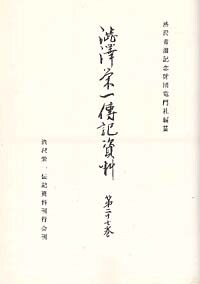 渋沢青淵記念財団竜門社編纂
澁澤栄一傳記資料
第二十七巻
渋沢栄一伝記資料刊行会刊